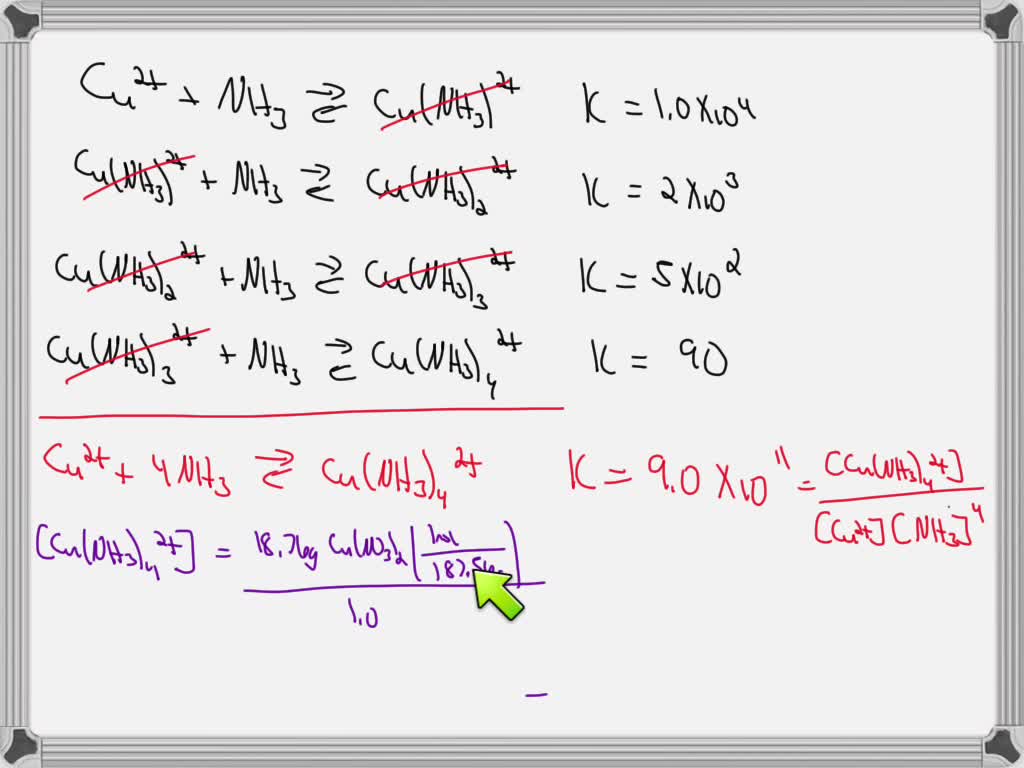 Cu²⁺ + NH₃ ⇌ Cu(NH₃)²⁺ K = 1.0 x 10⁴
Cu(NH₃)²⁺ + NH₃ ⇌ Cu(NH₃)₂²⁺ K = 2 x 10³
Cu(NH₃)₂²⁺ + NH₃ ⇌ Cu(NH₃)₃²⁺ K = 5 x 10²
Cu(NH₃)₃²⁺ + NH₃ ⇌ Cu(NH₃)₄²⁺ K = 90
Cu²⁺ + 4NH₃ ⇌ Cu(NH₃)₄²⁺ K = 9.0 x 10¹¹ = [Cu(NH₃)₄²⁺]
[Cu²⁺][NH₃]⁴
[Cu(NH₃)₄²⁺] = 18.76g Cu(NO₃)₂ (1mol
1.0